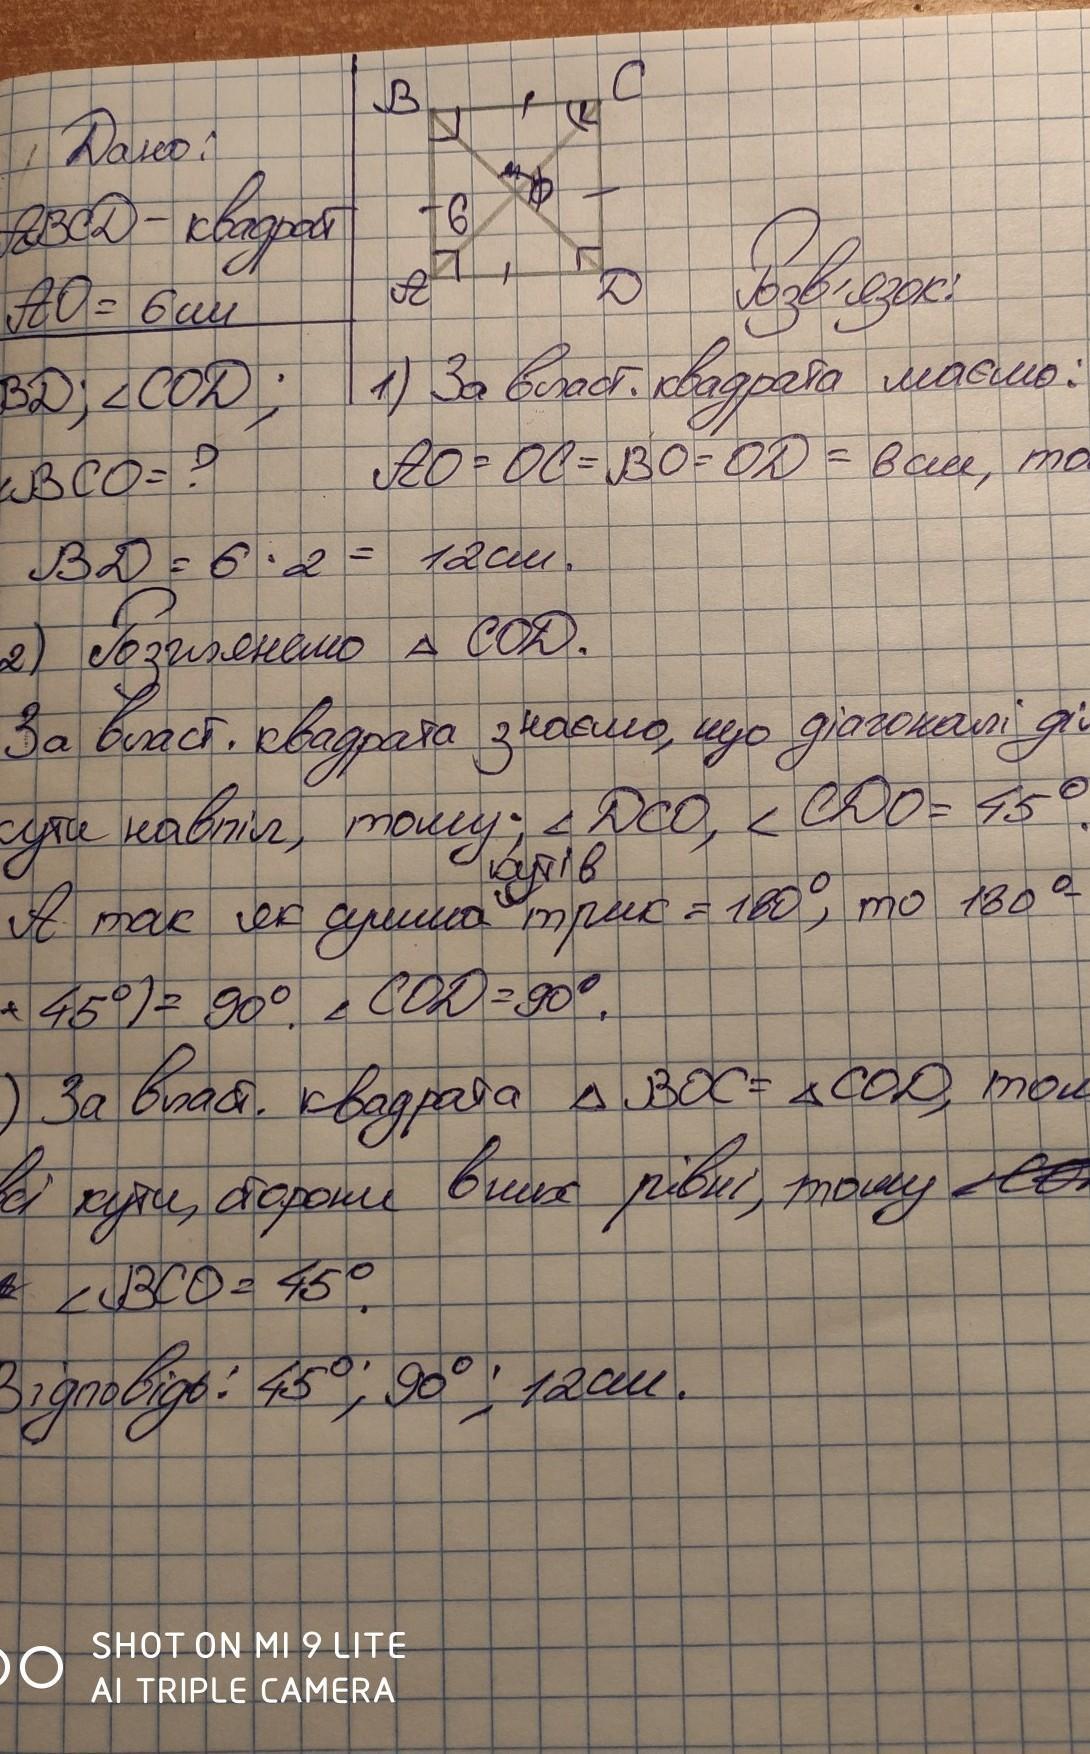 B C
Дано:
ABCD - квадрат
6
A D
AO = 6см
Розв'язок:
BD; ∠COD;
1) За власт. квадрата маємо:
∠BCO = ?
AO = OC = BO = OD = 6см, то
BD = 6 · 2 = 12см.
2) Розглянемо △ COD.
За власт. квадрата знаємо, що діагоналі діл
кути навпіл, тому; ∠DCO, ∠CDO = 45°.
кутів
А так як сума трик = 180°, то 180° -
+ 45°) = 90°. ∠COD = 90°.
) За власт. квадрата △ BOC = △COD, том
всі кути, сторони в них рівні, тому
∠BCO = 45°.
Відповідь: 45°; 90°; 12см.
SHOT ON MI 9 LITE
AI TRIPLE CAMERA